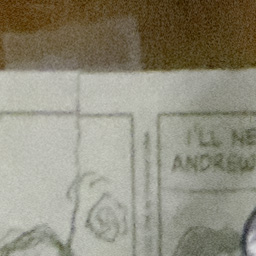 I'LL NE
ANDREW